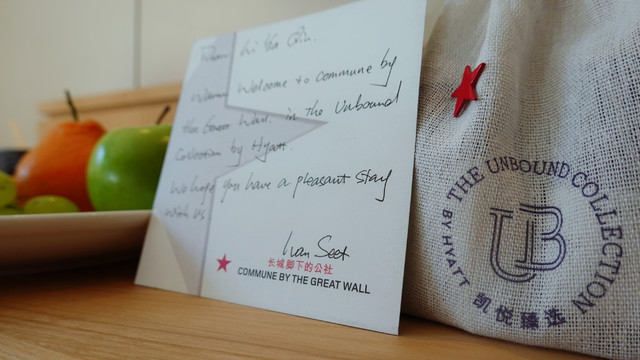 Li Yan Qin.
Warm Welcome to Commune by
the Great Wall. in the Unbound
Collection by Hyatt.
We hope you have a pleasant stay
with us
Ivan Seet
长城脚下的公社
COMMUNE BY THE GREAT WALL
THE UNBOUND COLLECTION
BY HYATT
UB
凯悦臻选